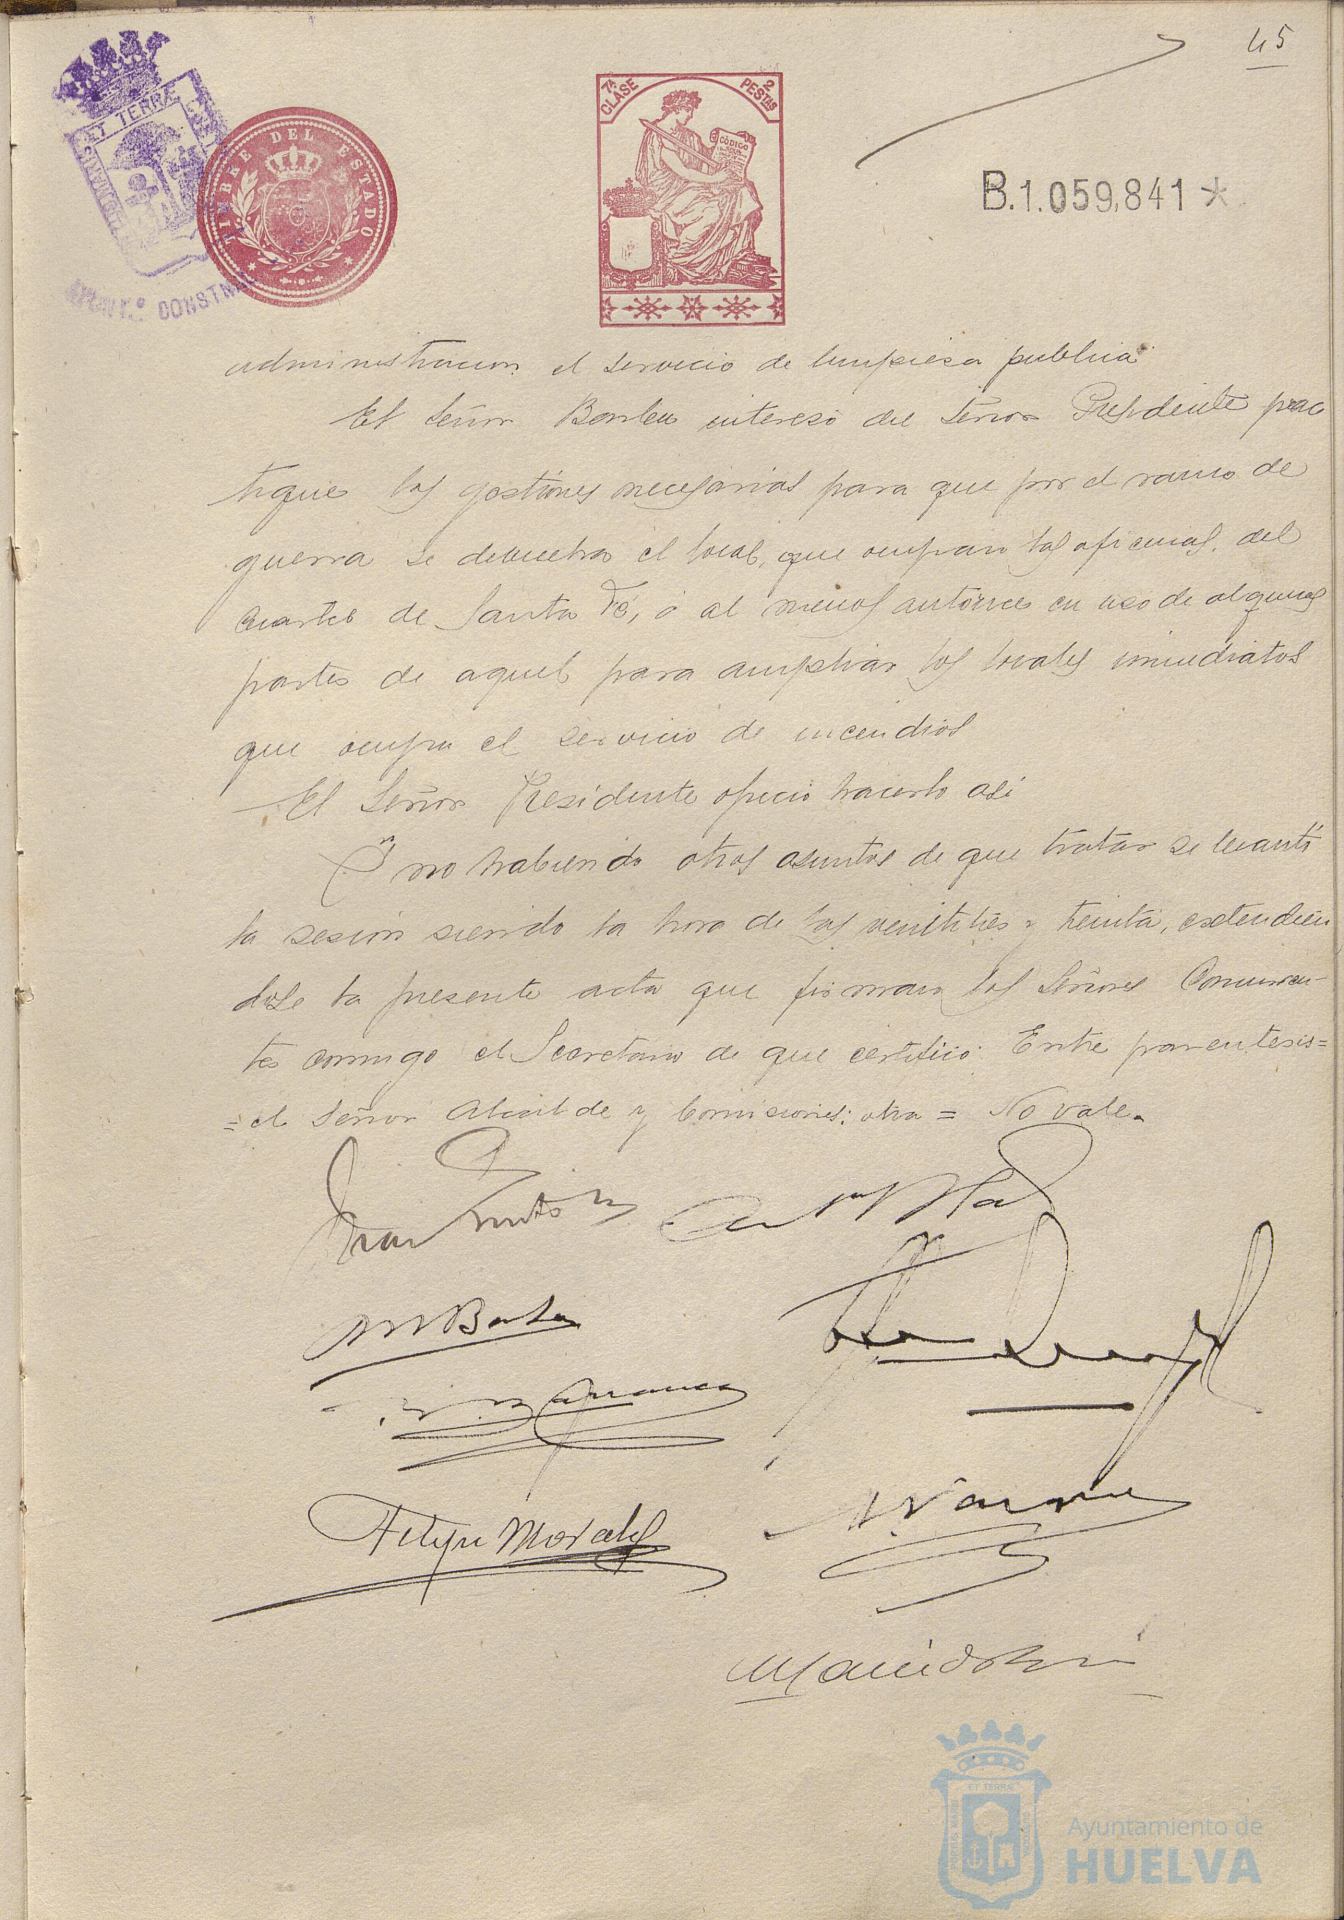 45
ET TERRÆ
AYUNT.º CONSTNAL
TIMBRE DEL ESTADO
7ª CLASE
2 PESTAS
CÓDIGO
B.1.059,841*
administracion el servicio de limpiesa publica
El Señor Barba intereso del Señor Presidente prac
tique las gestiones necesarias para que por el ramo de
guerra se devuelva el local, que ocupan las oficinas, del
cuartel de Santa Fé, o al menos autorice en uso de algunas
partes de aquel para ampliar los locales inmediatos
que ocupa el servicio de incendios
El Señor Presidente ofreció hacerlo asi
Y no habiendo otros asuntos de que tratar se levantó
la sesión siendo la hora de las veintitres y treinta, extendien
dose la presente acta que firman los Señores Concurren-
tes conmigo el Secretario de que certifico. Entre parentesis=
=el Señor Alcalde y Comisiones: otra = No vale.
M Barba
Felipe Morales
ET TERRÆ
Ayuntamiento de
HUELVA